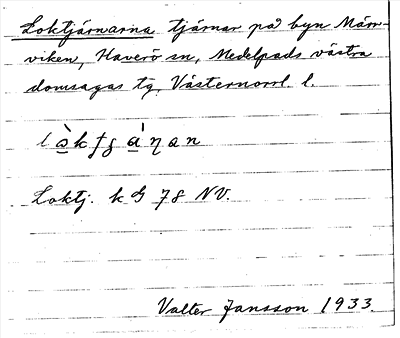 Loktjärnarna tjärnar på byn Märr-
viken, Haverö sn, Medelpads västra
domsagas tg, Västernorrl. l.
Loktj. k G 78 NV.
Valter Jansson 1933.